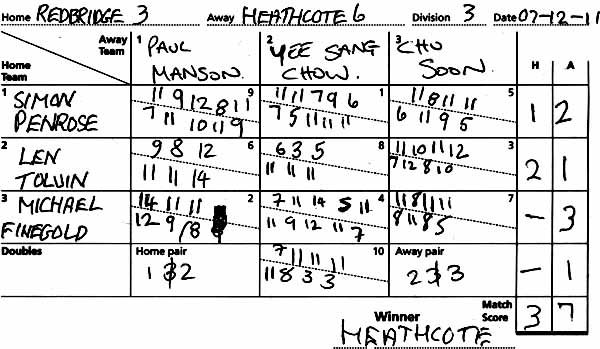 Home REDBRIDGE 3 Away HEATHCOTE 6 Division 3 Date 07-12-11
Away Team
Home Team
1 PAUL MANSON.
2 YEE SANG CHOW.
3 CHU SOON.
H A
1 SIMON PENROSE
9
11 9 12 8 11
7 11 10 11 9
1
11 11 7 9 6
7 5 11 11 11
5
11 8 11 11
6 11 9 5
1 2
2 LEN TOLVIN
6
9 8 12
11 11 14
8
6 3 5
11 11 11
3
11 10 11 12
7 12 8 10
2 1
3 MICHAEL FINEGOLD
2
14 11 11
12 9 8
4
7 11 14 5 11
11 9 12 11 7
7
11 8 11 11
8 11 8 5
- 3
Doubles
Home pair
1 & 2
10
7 11 11 11
11 8 3 3
Away pair
2 & 3
- 1
Winner HEATHCOTE
Match Score 3 7